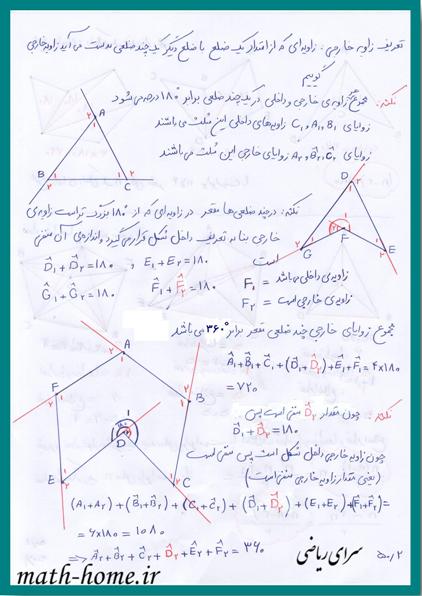 تعریف زاویه خارجی: زاویه‌ای که از امتداد یک ضلع با ضلع دیگر یک چند ضلعی بدست می آید زاویه خارجی
گوییم
نکته: مجموع زاویه‌ی خارجی و داخلی در یک چند ضلعی برابر ۱۸۰ درجه می شود
زوایای C₁ , A₁ , B₁ زاویه‌های داخلی این مثلث می باشند
زوایای A₂ , B̂₂ , Ĉ₂ زوایای خارجی این مثلث می باشند
A
B
C
نکته: در چند ضلعی‌ها مقعر در زاویه‌ای که از ۱۸۰° بزرگ تر است زاویه‌ی
خارجی بنا به تعریف داخل شکل قرار می گیرد و اندازه‌ی آن منفی
است
D̂₁ + D̂₂ = ۱۸۰ , E₁ + E₂ = ۱۸۰
Ĝ₁ + Ĝ₂ = ۱۸۰ F̂₁ + F̂₂ = ۱۸۰
F₁ = زاویه‌ی داخلی می باشد
F₂ = زاویه‌ی خارجی است
D
G
F
E
مجموع زوایای خارجی چند ضلعی مقعر برابر ۳۶۰° می باشد
Â₁ + B̂₁ + Ĉ₁ + (D̂₁ + D̂₂) + Ê₁ + F̂₁ = ۴×۱۸۰
= ۷۲۰
نکته: چون مقدار D̂₂ منفی است پس
D̂₁ + D̂₂ = ۱۸۰
چون زاویه خارجی داخل شکل است پس منفی است
(یعنی مقدار زاویه خارجی منفی است)
A
F
B
D
E
C
(A₁+A₂) + (B̂₁+B̂₂) + (Ĉ₁+Ĉ₂) + (D̂₁+D̂₂) + (E₁+E₂) + (F̂₁+F̂₂) =
= ۶×۱۸۰ = ۱۰۸۰
⇒ Â₂ + B̂₂ + Ĉ₂ + D̂₂ + Ê₂ + F̂₂ = ۳۶۰
سرای ریاضی
math-home.ir